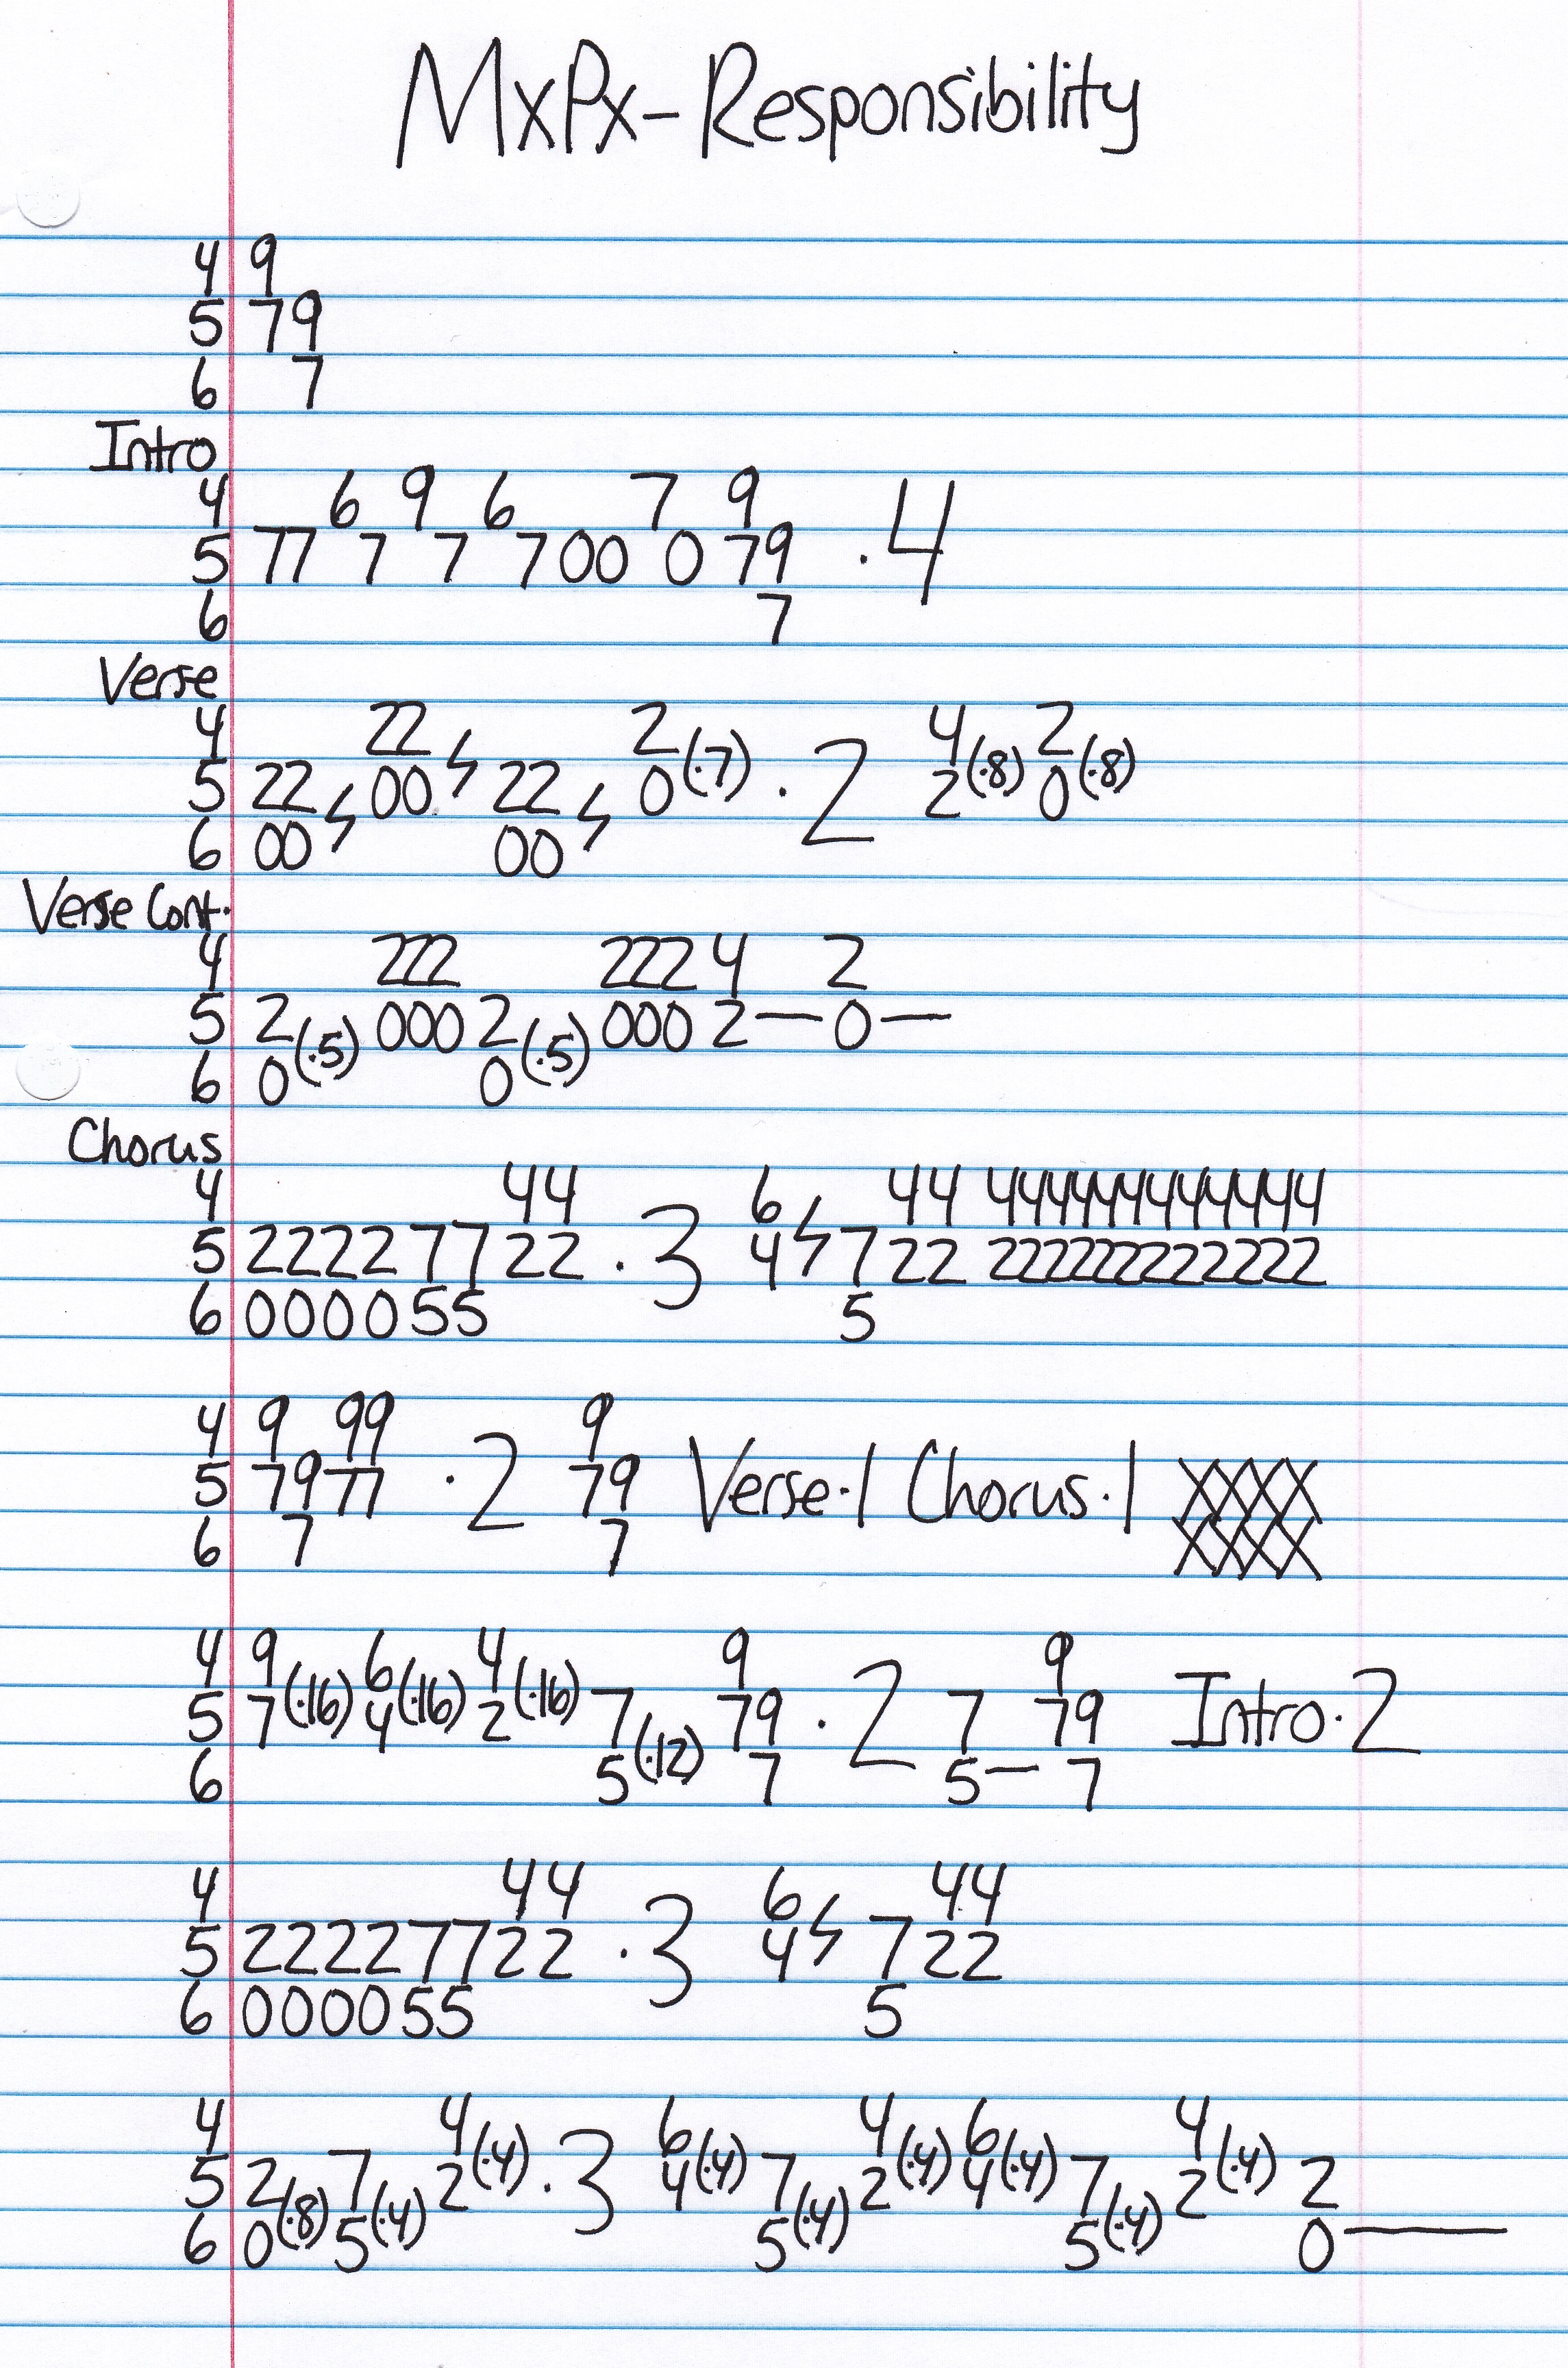 MxPx - Responsibility
4 9
5 79
6 7
Intro
4 6 9 6 7 9
5 77 7 7 700 0 79 .4
6 7
Verse
4 22 2 4 2
5 22 00 22 0(.7) .2 2(.8) 0(.8)
6 00 00
Verse Cont.
4 222 222 4 2
5 2 000 2 000 2— 0—
6 0(.5) 0(.5)
Chorus
4 44 6 44 44444444444
5 2222 77 22 .3 4 7 22 22222222222
6 0000 55 5
4 9 99 9
5 7977 .2 79 Verse.1 Chorus.1
6 7 7
4 9 6 4 9 9
5 7(.16) 4(.16) 2(.16) 7 79 .2 7 79 Intro.2
6 5(.12) 7 5— 7
4 44 6 44
5 2222 77 22 .3 4 7 22
6 0000 55 5
4 4 6 4 6 4
5 2 7 2(.4) .3 4(.4) 7 2(.4) 4(.4) 7 2(.4) 2
6 0(.8) 5(.4) 5(.4) 5(.4) 0—